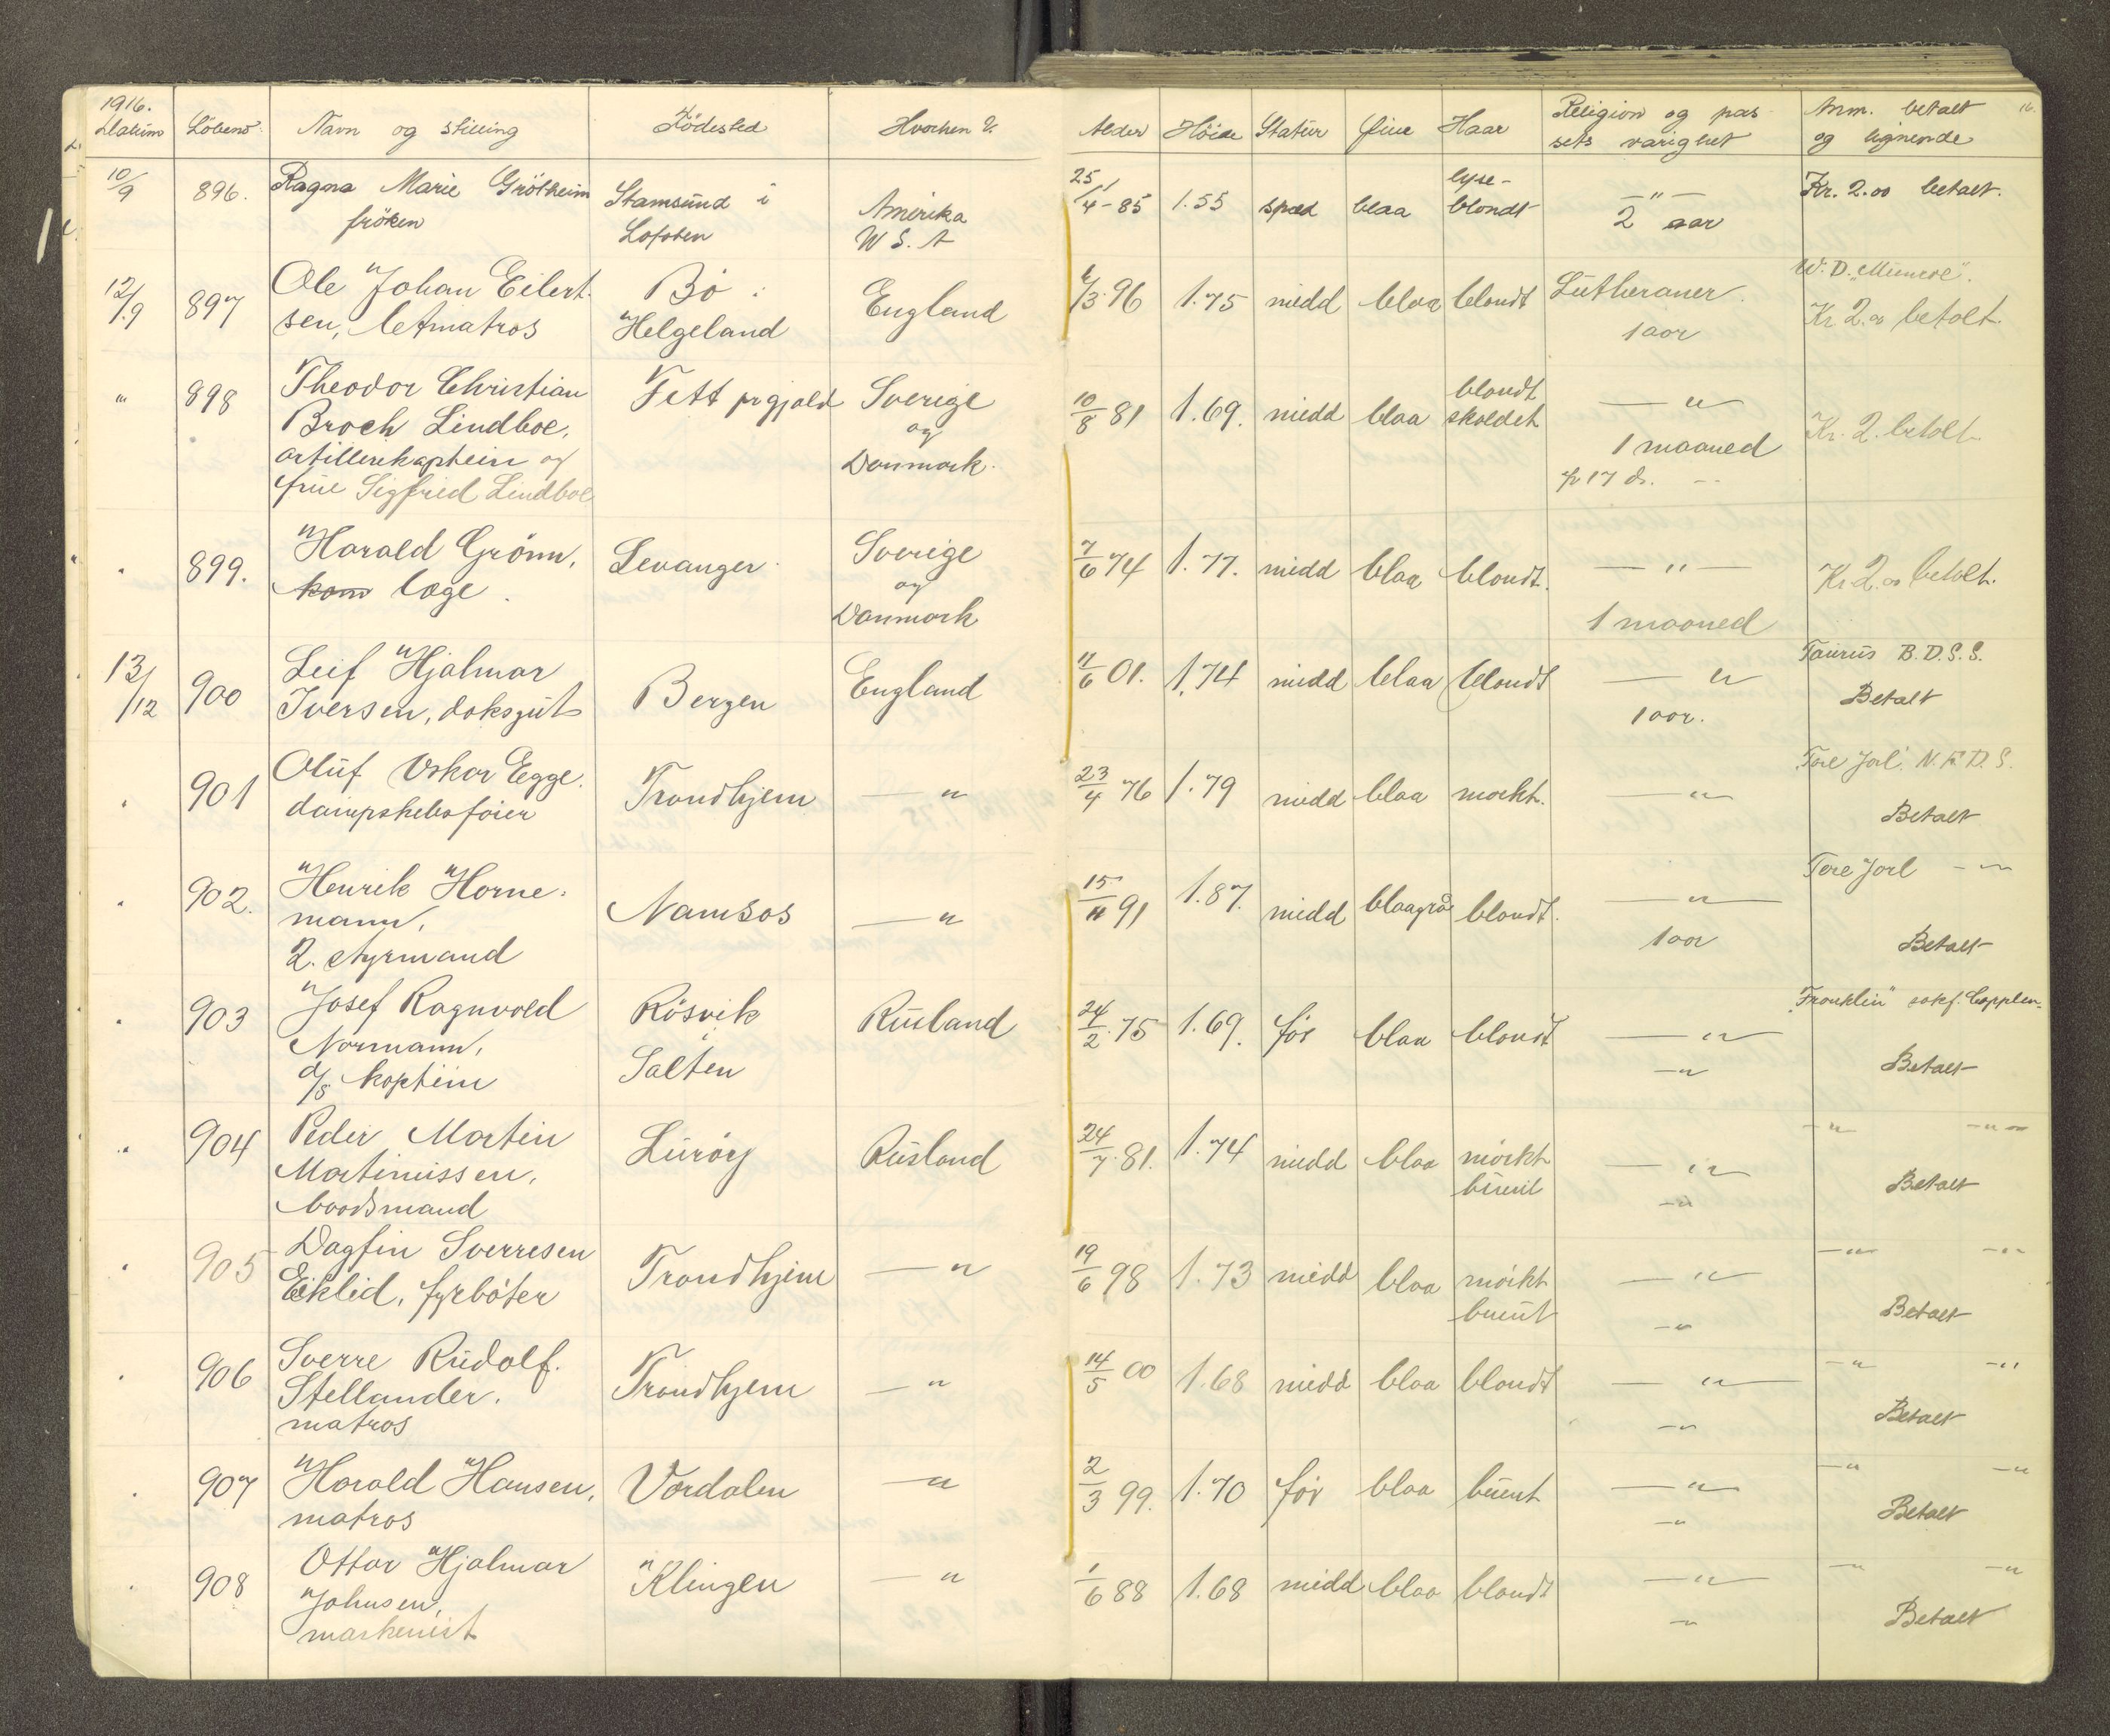 1916. Datum Löbenr. Navn og stilling Födested Hvorhen? Alder Höide Statur Öine Haar Religion og passets varighet Anm. betalt og lignende
10/9 896. Ragna Marie Grötheim Stamsund i Amerika 25 1/4-85 1.55 spæd blaa lyse-blondt —"— Kr. 2.00 betalt.
fröken Lofoten W S. A 2 aar
12/9 897 Ole Johan Eilert- Bö i England /3 96 1.75 midd blaa blondt Lutheraner W. D.
sen, letmatros Helgeland 1 aar Kr 2.00 betalt.
" 898 Theodor Christian Fett prgjæld Sverige 10/8 81 1.69. midd blaa blondt —"—
Broch Lindboe, og skaldet 1 maaned Kr. 2. betalt
artillerikaptein og Danmark.
frue Sigfried Lindboe 17 —
" 899. Harald Grönn, Levanger Sverige 7/6 74 1.77. midd blaa blondt. —"—
kom læge. og Kr 2.00 betalt.
Danmark 1 maaned
13/12 900 Leif Hjalmar Bergen England 11/6 01. 1.74 midd blaa blondt —"— Taurus B.D.S.S.
Iversen, daksgut 1 aar. Betalt
" 901 Oluf Oskar Egge. Trondhjem —"— 23/4 76 1.79 midd blaa mørkt. —"— Tore Jarl N.F.D.S.
dampskibsfører Betalt
" 902. Henrik Horne- Namsos —"— 15/11 91 1.87. midd blaagrå blondt. —"— Tore Jarl —"—
mann,
2. styrmand 1 aar Betalt
" 903 Josef Ragnvald Rösvik Rusland 24/2 75 1.69. før blaa blondt —"— "Franklin"
Normann, i
d/s kaptein Salten —"— Betalt
" 904 Peder Martin Luröy Rusland 24/7 81. 1.74 midd blaa mörkt —"— —"— —"—
Martinussen, brunt
baadsmand —"— Betalt
" 905 Dagfin Sverresen Trondhjem —"— 19/6 98 1.73 midd blaa mörkt —"— —"— —"—
Eiklid, fyrböter brunt —"— Betalt
" 906 Sverre Rudolf. Trondhjem —"— 14/5 00 1.68 midd blaa blondt —"— —"— —"—
Stellander.
matros —"— Betalt
" 907 Harald Hansen, Værdalen —"— 2/3 99. 1.70 før blaa brunt —"— —"— —"—
matros —"— Betalt
" 908 Ottar Hjalmar Klingen —"— 1/6 88 1.68 midd blaa blondt —"— —"— —"—
Johnsen,
maskinist —"— Betalt